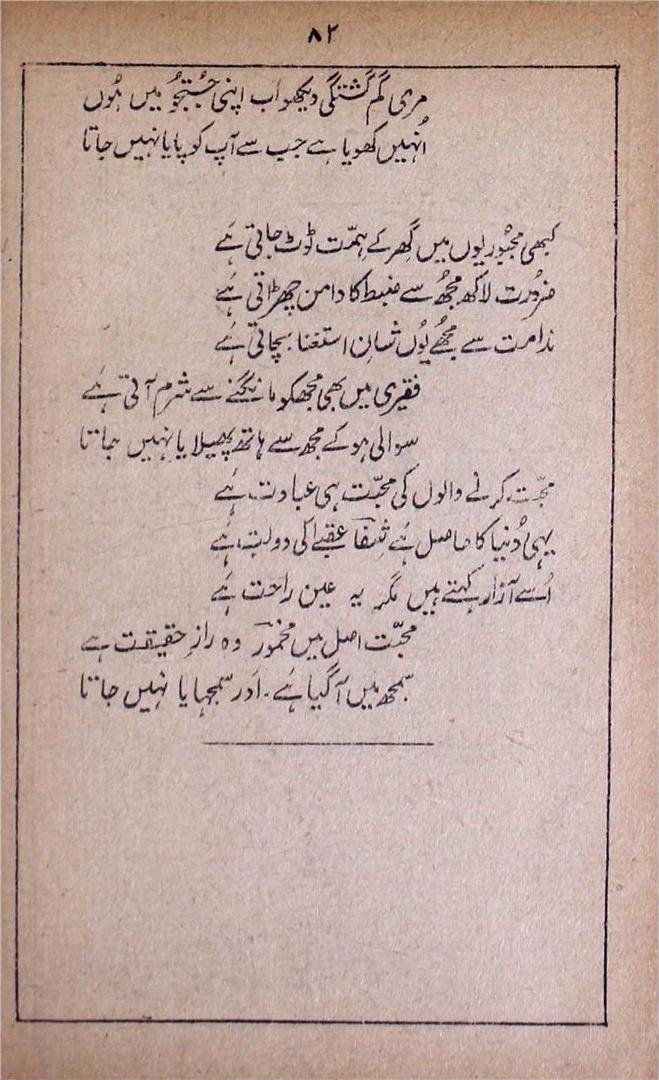 ۸۲
مری گم گشتگی دیکھو اب اپنی جُستجُو میں ہُوں
اُنہیں کھویا ہے جب سے آپ کو پایا نہیں جاتا
کبھی مجبُوریوں میں گِھر کے ہمّت ٹوٹ جاتی ہَے
ضرُورت لاکھ مجھُ سے ضبط کا دامن چھڑاتی ہَے
ندامت سے مجھُے یُوں شانِ استغنا بچاتی ہَے
فقیری میں بھی مجھکو مانگنے سے شرم آتی ہَے
سوالی ہو کے مجھ سے ہاتھ پھیلایا نہیں جاتا
محبّت کرنے والوں کی محبّت ہی عبادت ہَے
یہی دُنیا کا حاصل ہَے شفاؔ عقبےٰ کی دولت ہَے
اُسے آزار کہتے ہیں مگر یہ عین راحت ہَے
محبّت اصل میں مخمورؔ وہ رازِ حقیقت ہے
سمجھ میں آ گیا ہَے۔ اَور سمجہایا نہیں جاتا